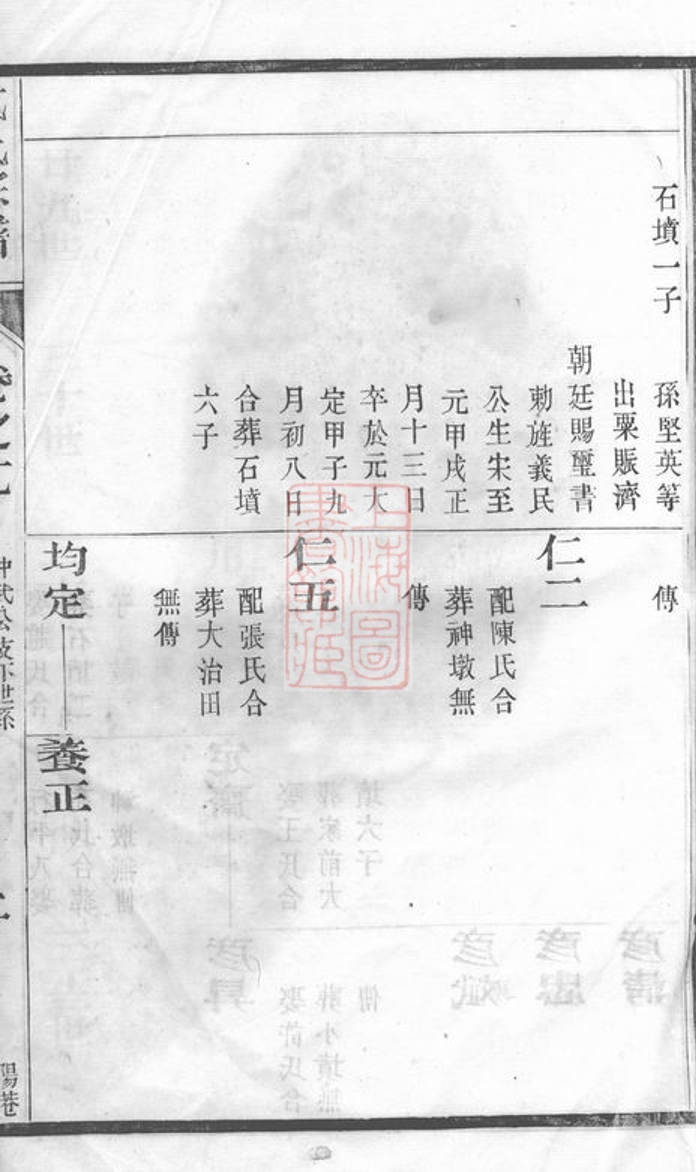 石墳一子
孫堅英等
出粟賑濟
朝廷賜璽書
勅旌義民
公生宋至
元甲戌正
月十三日
卒於元大
定甲子九
月初八日
合葬石墳
六子
傳
仁二
配陳氏合
葬神墩無
傳
仁五
配張氏合
葬大治田
無傳
均定
養正
上海圖書館藏